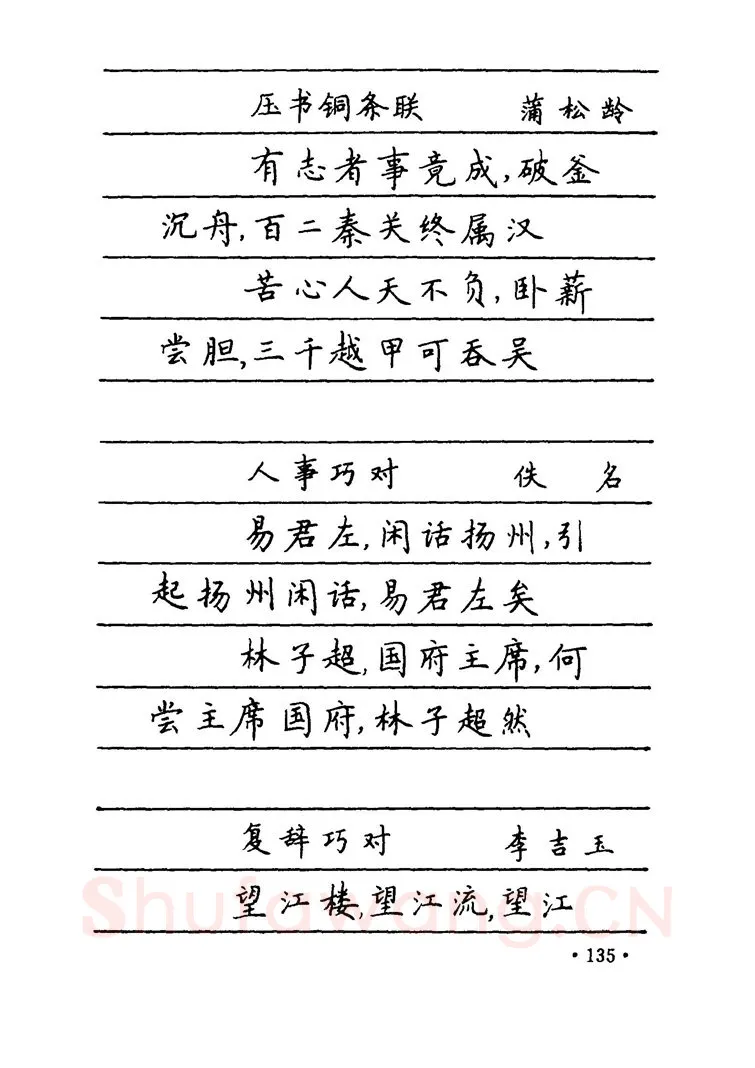 压书铜条联 蒲松龄
有志者事竟成,破釜
沉舟,百二秦关终属汉
苦心人天不负,卧薪
尝胆,三千越甲可吞吴
人事巧对 佚名
易君左,闲话扬州,引
起扬州闲话,易君左矣
林子超,国府主席,何
尝主席国府,林子超然
复辞巧对 李吉玉
望江楼,望江流,望江
Shufawang.CN
·135·